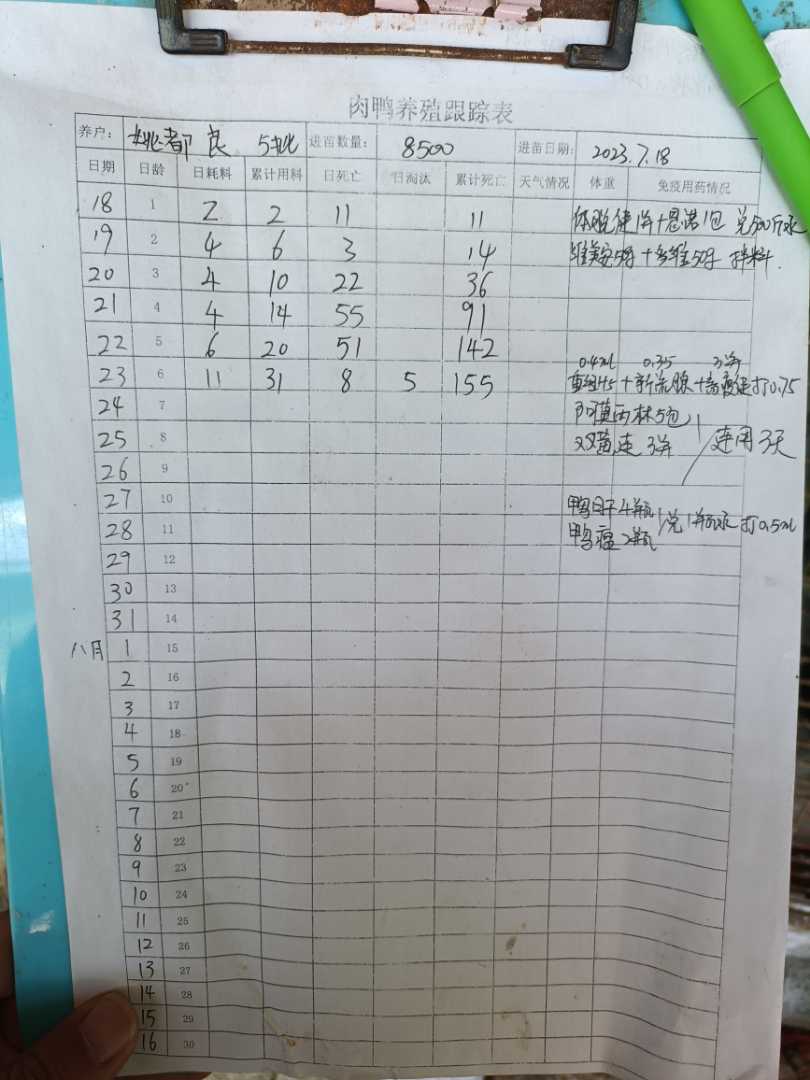 肉鸭养殖跟踪表
养户: 姚都良 5批 进苗数量: 8500 进苗日期: 2023.7.18
日期 日龄 日耗料 累计用料 日死亡 日淘汰 累计死亡 天气情况 体重 免疫用药情况
18 1 2 2 11 11
19 2 4 6 3 14 拌料
20 3 4 10 22 36
21 4 4 14 55 91
22 5 6 20 51 142
0.4ml 0.35
23 6 11 31 8 5 155 打0.75
24 7 5包
25 8 双黄连 3并 连用3天
26 9
27 10 鸭肝4瓶
28 11 打0.5ml
鸭瘟2瓶
29 12
30 13
31 14
八月 1 15
2 16
3 17
4 18
5 19
6 20
7 21
8 22
9 23
10 24
11 25
12 26
13 27
14 28
15 29
16 30